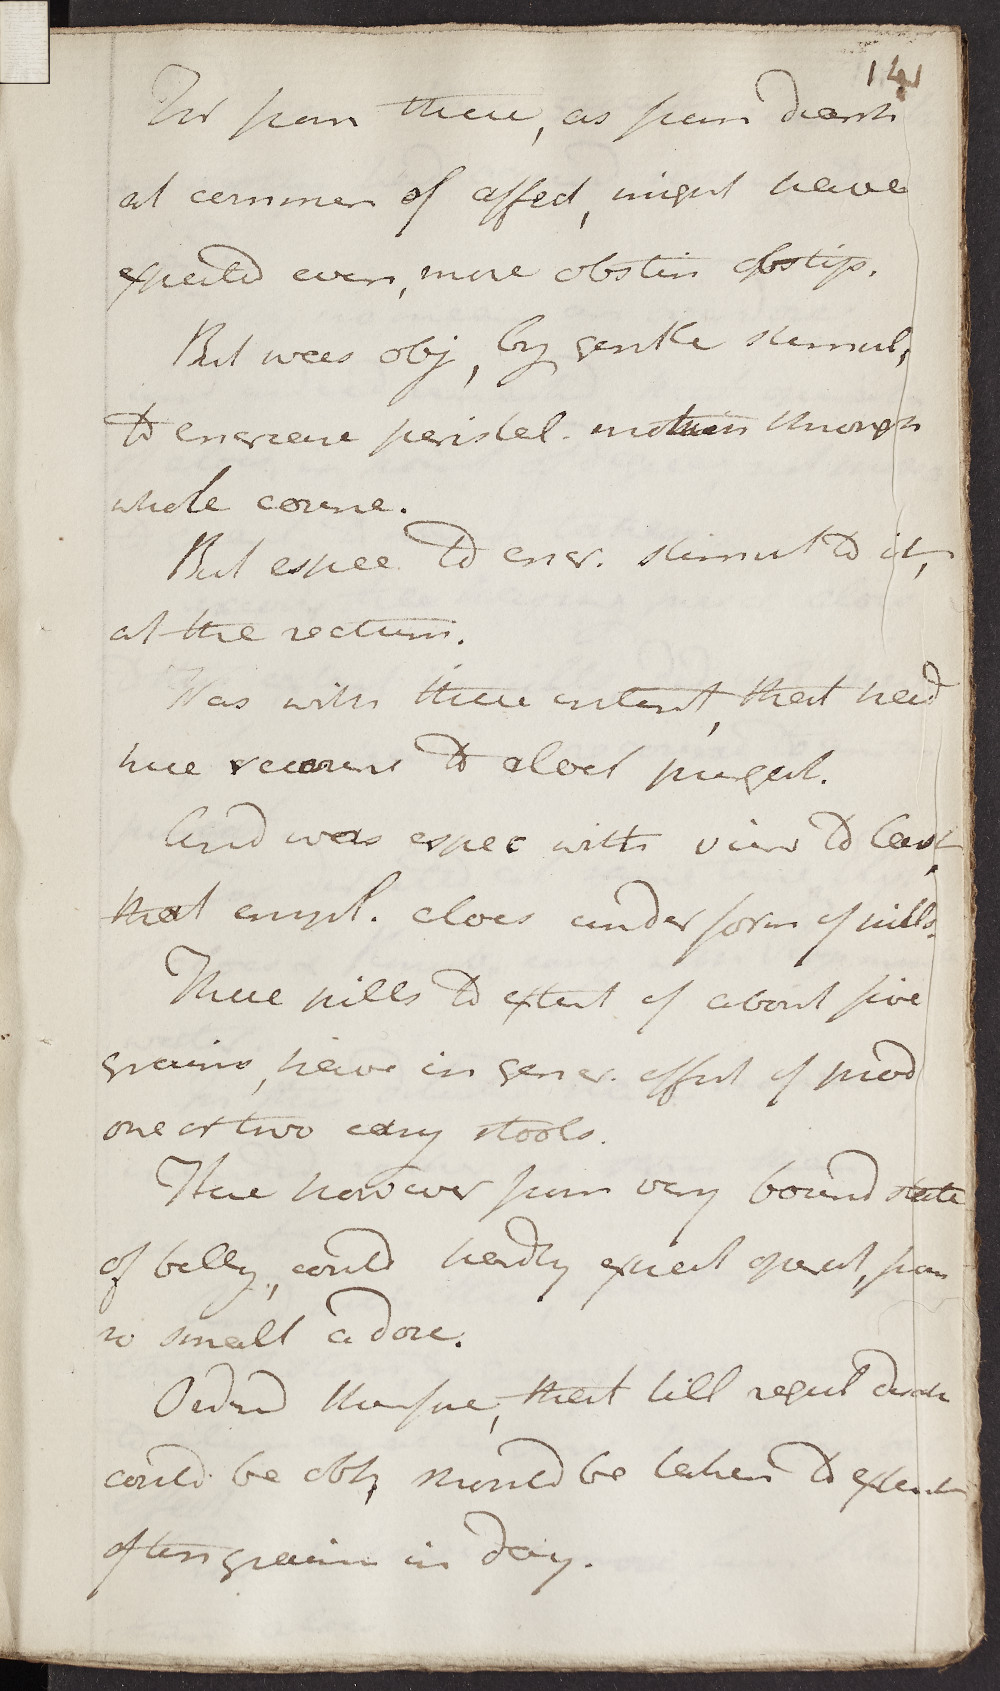 141
For from these, as from diarrh
at commen of affect, might have
expected even, more obstin obstip.
But was obj, by gentle stimul,
to increase peristal. motion through
whole course.
But espec to incr. stimul to it,
at the rectum.
Was with these intent, that had
here recourse to aloet purgat.
And was espec with view to last,
that empl. aloes under form of pills.
These pills to extent of about five
grains, have in gener. effect of prod
one or two easy stools.
Here however from very bound state
of belly, could hardly expect operat, from
so small a dose.
Ordered therefore, that till regul disch
could be obt, should be taken to extent
of ten grains in day.